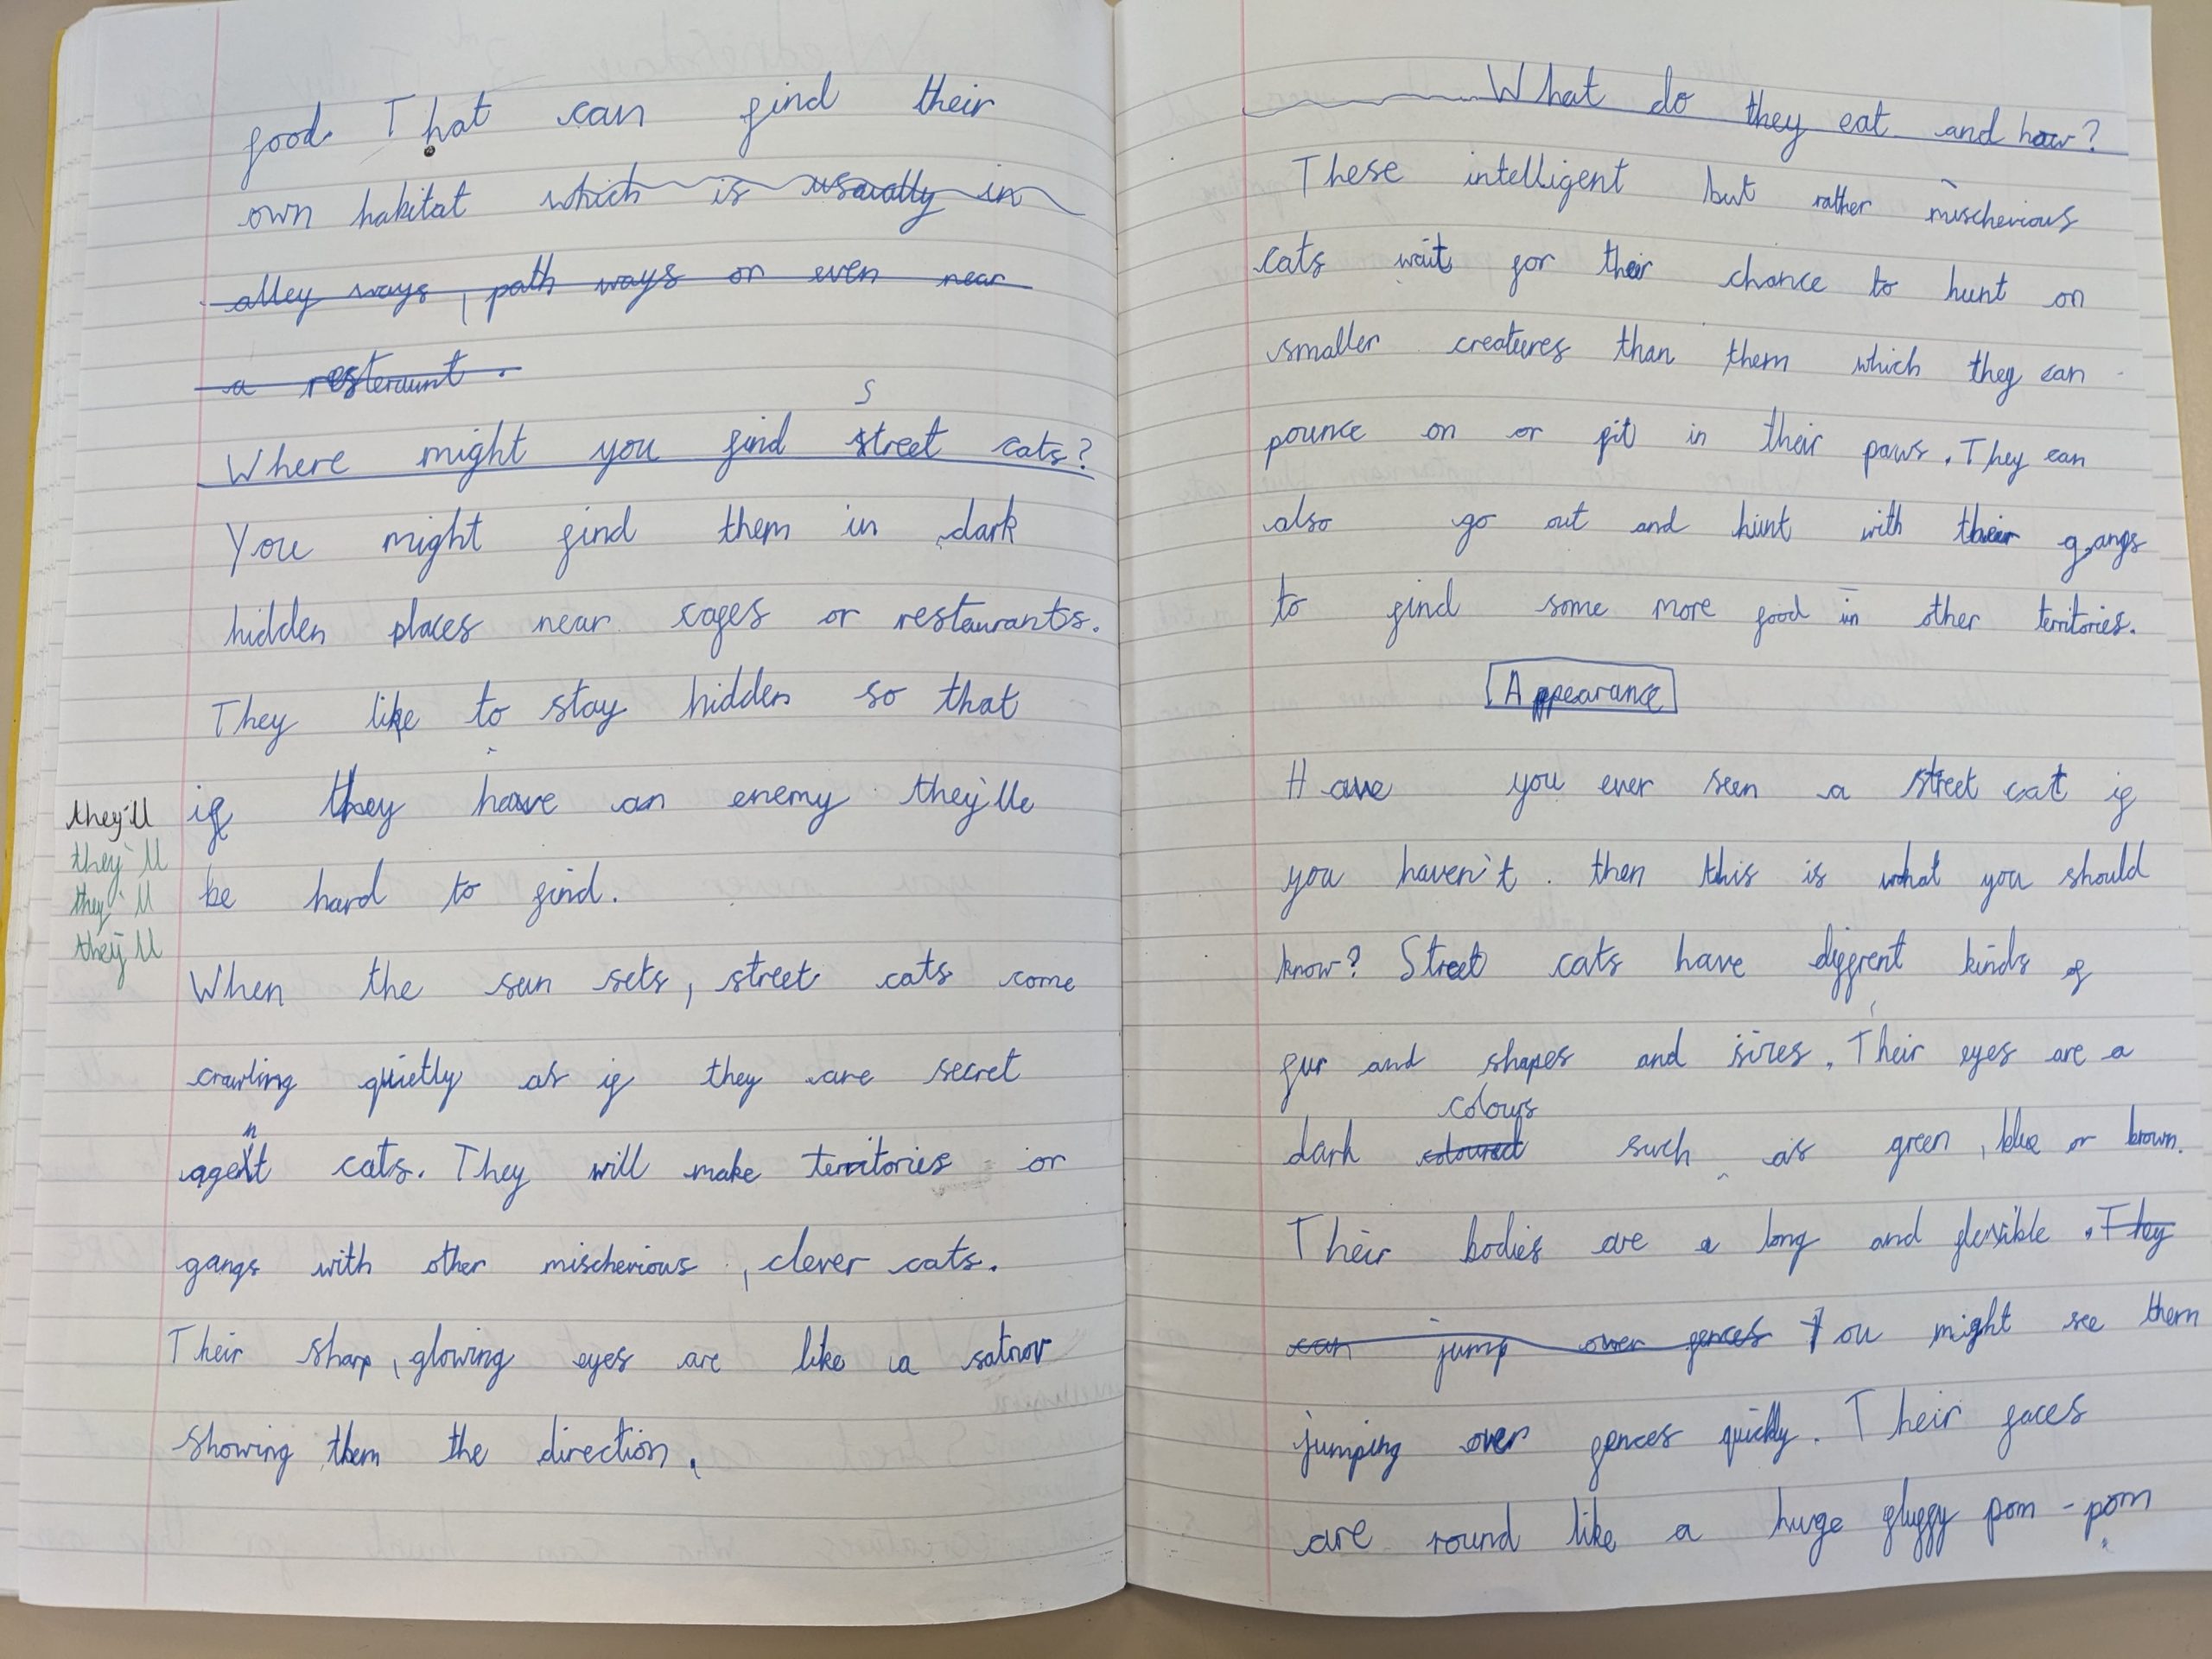 food. That can find their
own habitat which is usually in
alley ways, path ways or even near
a resteraunt.
S
Where might you find street cats?
You might find them in dark
hidden places near cafes or restaurants.
They like to stay hidden so that
they'll
if they have an enemy they'lle
they'll
they'll
be hard to find.
they'll
When the sun sets, street cats come
crawling quietly as if they are secret
n
agent cats. They will make territories or
gangs with other mischevious, clever cats.
Their sharp, glowing eyes are like a satnav
showing them the direction.
What do they eat and how?
These intelligent but rather mischevious
cats wait for their chance to hunt on
smaller creatures than them which they can
pounce on or fit in their paws. They can
also go out and hunt with their gangs
to find some more food in other territories.
Appearance
Have you ever seen a street cat if
you haven't. then this is what you should
know? Street cats have diffrent kinds of
fur and shapes and sizes. Their eyes are a
colours
dark coloured such as green, blue or brown.
Their bodies are a long and flexible. They
can jump over fences You might see them
jumping over fences quickly. Their faces
are round like a huge fluffy pom-pom